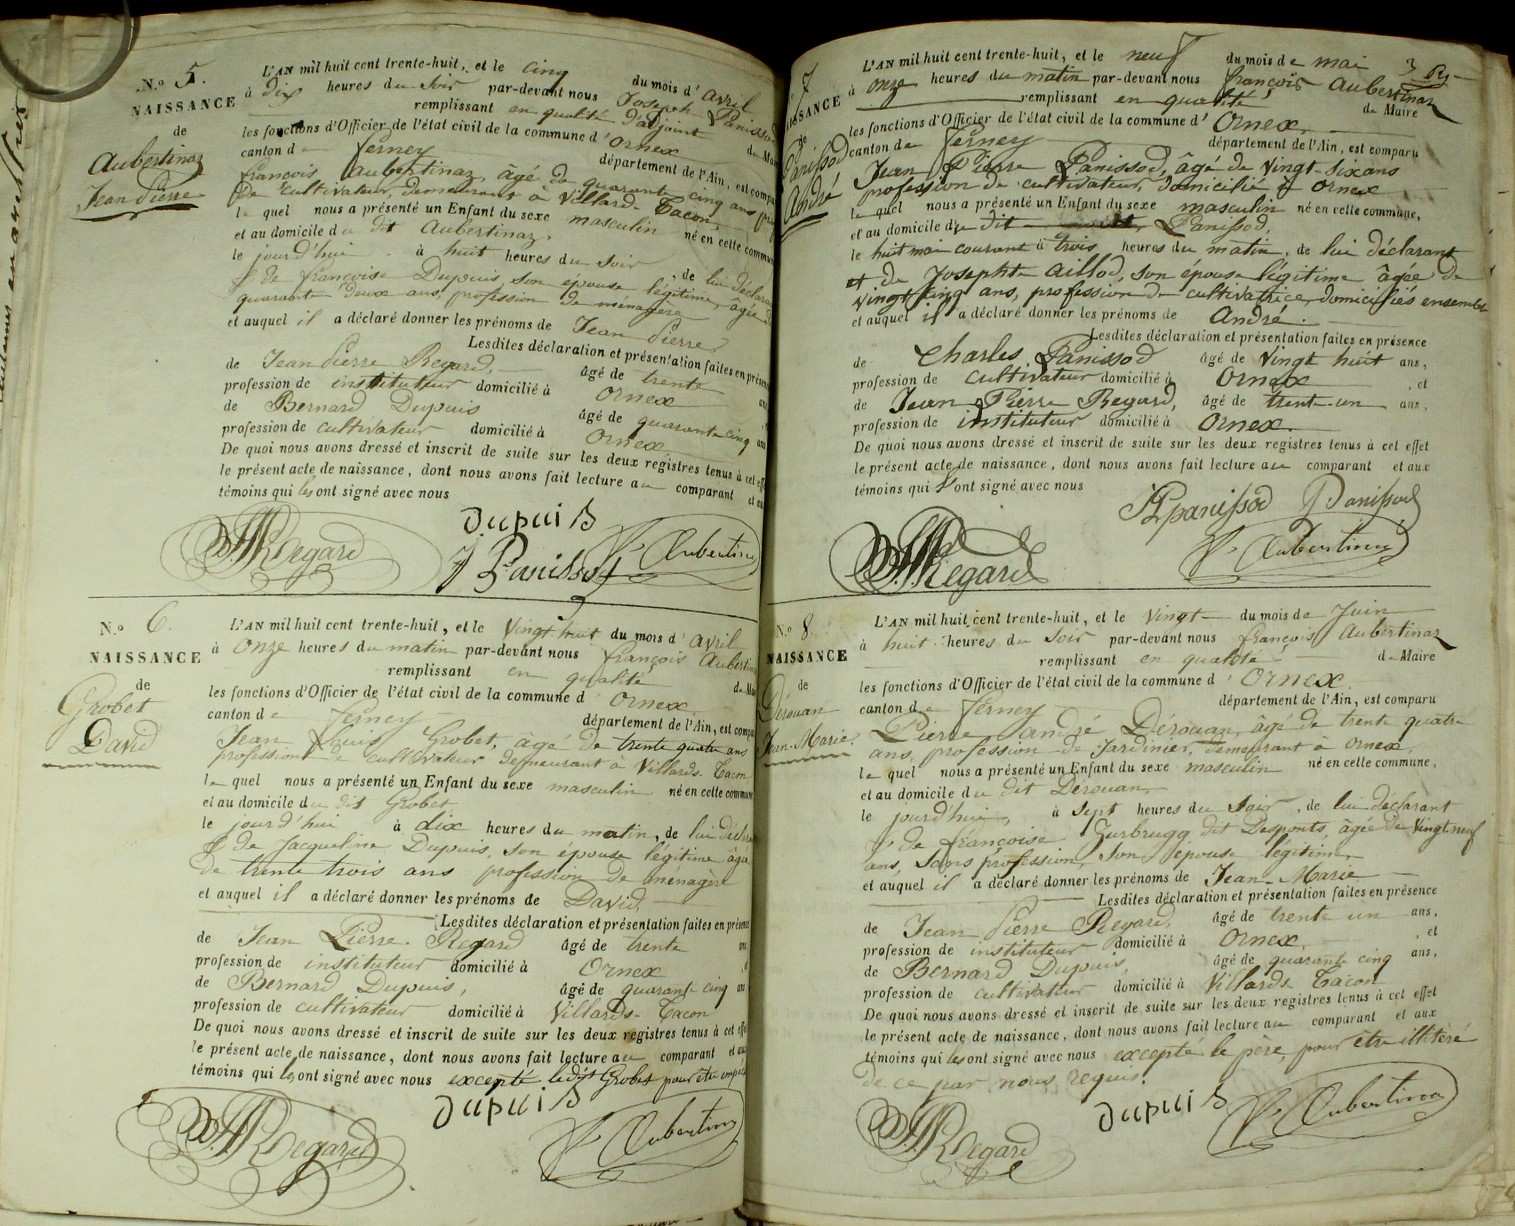 N.º 5.
NAISSANCE
de
Aubertinaz
Jean Pierre
L'AN mil huit cent trente-huit, et le cinq du mois d'avril
à dix heures du soir par-devant nous Joseph Panissod
remplissant en qualité d'adjoint
les fonctions d'Officier de l'état civil de la commune d'Ornex
canton de Ferney département de l'Ain, est comparu
françois Aubertinaz, âgé de quarante cinq ans
De cultivateur, demeurant à Villard Tacon
lequel nous a présenté un Enfant du sexe masculin né en cette commune
et au domicile du dit Aubertinaz,
le jourd'hui à huit heures du soir, de lui déclarant
& de françoise Dupuis son épouse légitime, âgée de
quarante deux ans, profession de ménagère
et auquel il a déclaré donner les prénoms de Jean Pierre
Lesdites déclaration et présentation faites en présence
de Jean Pierre Regard, âgé de trente ans
profession de instituteur domicilié à Ornex
de Bernard Dupuis âgé de quarante cinq ans
profession de cultivateur domicilié à Ornex
De quoi nous avons dressé et inscrit de suite sur les deux registres tenus à cet effet
le présent acte de naissance, dont nous avons fait lecture au comparant et aux
témoins qui les ont signé avec nous
Dupuis
Regard J Panissod f. Aubertinaz
N.º 6.
NAISSANCE
de
Grobet
David
L'AN mil huit cent trente-huit, et le vingt huit du mois d'avril
à onze heures du matin par-devant nous françois Aubertinaz
remplissant en qualité de Maire
les fonctions d'Officier de l'état civil de la commune d'Ornex
canton de Ferney département de l'Ain, est comparu
Jean Louis Grobet, âgé de trente quatre ans
profession de cultivateur demeurant à Villards Tacon
lequel nous a présenté un Enfant du sexe masculin né en cette commune
et au domicile du dit Grobet
le jourd'hui à dix heures du matin, de lui déclarant
& de Jacqueline Dupuis, son épouse légitime âgée
de trente trois ans profession de ménagère
et auquel il a déclaré donner les prénoms de David
Lesdites déclaration et présentation faites en présence
de Jean Pierre Regard âgé de trente ans
profession de instituteur domicilié à Ornex
de Bernard Dupuis, âgé de quarante cinq ans
profession de cultivateur domicilié à Villards-Tacon
De quoi nous avons dressé et inscrit de suite sur les deux registres tenus à cet effet
le présent acte de naissance, dont nous avons fait lecture au comparant et aux
témoins qui les ont signé avec nous excepté le dit Grobet pour être
Dupuis
Regard f. Aubertinaz
3
7
NAISSANCE
de
Panissod
André
L'AN mil huit cent trente-huit, et le neuf du mois de mai
à onze heures du matin par-devant nous françois Aubertinaz
remplissant en qualité de Maire
les fonctions d'Officier de l'état civil de la commune d'Ornex,
canton de Ferney département de l'Ain, est comparu
Jean Pierre Panissod, âgé de vingt-six ans
profession de cultivateur, domicilié à Ornex
lequel nous a présenté un Enfant du sexe masculin né en cette commune,
et au domicile du dit Panissod,
le huit mai courant à trois heures du matin, de lui déclarant
et de Josephte Aillod, son épouse légitime âgée de
vingt cinq ans, profession de cultivatrice, domiciliés ensemble
et auquel il a déclaré donner les prénoms de André.
Lesdites déclaration et présentation faites en présence
de Charles Panissod âgé de vingt huit ans,
profession de cultivateur domicilié à Ornex, et
de Jean Pierre Regard, âgé de trent-un ans,
profession de instituteur domicilié à Ornex.
De quoi nous avons dressé et inscrit de suite sur les deux registres tenus à cet effet
le présent acte de naissance, dont nous avons fait lecture au comparant et aux
témoins qui l'ont signé avec nous
JPpanissod Panissod
Regard f. Aubertinaz
N.º 8.
NAISSANCE
de
Dérouan
Jean-Marie
L'AN mil huit cent trente-huit, et le vingt du mois de Juin
à huit heures du soir par-devant nous françois Aubertinaz
remplissant en qualité de Maire
les fonctions d'Officier de l'état civil de la commune d'Ornex
canton de Ferney département de l'Ain, est comparu
Pierre André Dérouan, âgé de trente quatre
ans, profession de Jardinier, demeurant à Ornex,
lequel nous a présenté un Enfant du sexe masculin né en cette commune,
et au domicile du dit Dérouan
le jourd'hui, à sept heures du soir, de lui déclarant
& de françoise Zurbrugg dit Desponts, âgée de vingt neuf
ans, sans profession, son épouse légitime
et auquel il a déclaré donner les prénoms de Jean-Marie
Lesdites déclaration et présentation faites en présence
de Jean Pierre Regard, âgé de trente un ans,
profession de instituteur domicilié à Ornex, et
de Bernard Dupuis, âgé de quarante cinq ans,
profession de cultivateur domicilié à Villards Tacon
De quoi nous avons dressé et inscrit de suite sur les deux registres tenus à cet effet
le présent acte de naissance, dont nous avons fait lecture au comparant et aux
témoins qui les ont signé avec nous excepté le père, pour être illitéré
de ce par nous requis.
Dupuis
Regard f. Aubertinaz